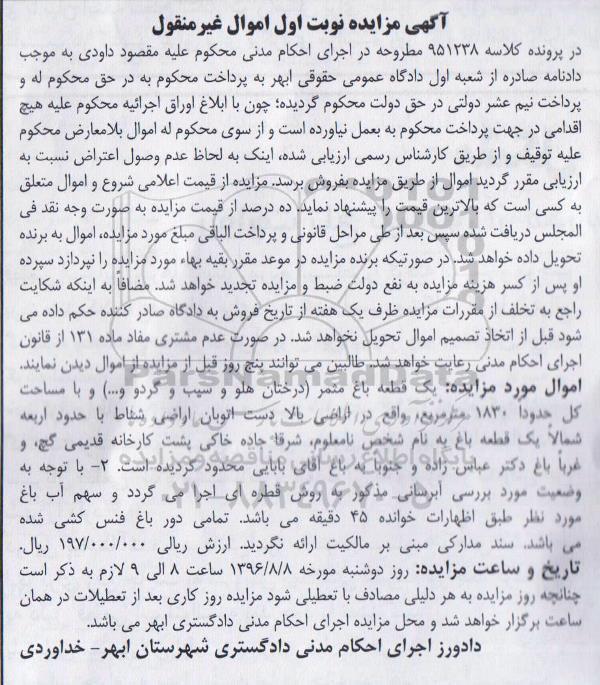 آگهی مزایده نوبت اول اموال غیرمنقول
در پرونده کلاسه ۹۵۱۲۳۸ مطروحه در اجرای احکام مدنی محکوم علیه مقصود داودی به موجب
دادنامه صادره از شعبه اول دادگاه عمومی حقوقی ابهر به پرداخت محکوم به در حق محکوم له و
پرداخت نیم عشر دولتی در حق دولت محکوم گردیده؛ چون با ابلاغ اوراق اجرائیه محکوم علیه هیچ
اقدامی در جهت پرداخت محکوم به بعمل نیاورده است و از سوی محکوم له اموال بلامعارض محکوم
علیه توقیف و از طریق کارشناس رسمی ارزیابی شده، اینک به لحاظ عدم وصول اعتراض نسبت به
ارزیابی مقرر گردید اموال از طریق مزایده بفروش برسد. مزایده از قیمت اعلامی شروع و اموال متعلق
به کسی است که بالاترین قیمت را پیشنهاد نماید. ده درصد از قیمت مزایده به صورت وجه نقد فی
المجلس دریافت شده سپس بعد از طی مراحل قانونی و پرداخت الباقی مبلغ مورد مزایده، اموال به برنده
تحویل داده خواهد شد. در صورتیکه برنده مزایده در موعد مقرر بقیه بهاء مورد مزایده را نپردازد سپرده
او پس از کسر هزینه مزایده به نفع دولت ضبط و مزایده تجدید خواهد شد. مضافاً به اینکه شکایت
راجع به تخلف از مقررات مزایده ظرف یک هفته از تاریخ فروش به دادگاه صادر کننده حکم داده می
شود قبل از اتخاذ تصمیم اموال تحویل نخواهد شد. در صورت عدم مشتری مفاد ماده ۱۳۱ از قانون
اجرای احکام مدنی رعایت خواهد شد. طالبین می توانند پنج روز قبل از مزایده از اموال دیدن نمایند.
اموال مورد مزایده: یک قطعه باغ مثمر (درختان هلو و سیب و گردو و...) و با مساحت
کل حدودا ۱۸۳۰ مترمربع، واقع در اراضی بالا دست اتوبان اراضی شناط با حدود اربعه
شمالاً یک قطعه باغ به نام شخص نامعلوم، شرقا جاده خاکی پشت کارخانه قدیمی گچ، و
غرباً باغ دکتر عباس زاده و جنوبا به باغ آقای بابایی محدود گردیده است. ۲- با توجه به
وضعیت مورد بررسی آبرسانی مذکور به روش قطره ای اجرا می گردد و سهم آب باغ
مورد نظر طبق اظهارات خوانده ۴۵ دقیقه می باشد. تمامی دور باغ فنس کشی شده
می باشد. سند مدارکی مبنی بر مالکیت ارائه نگردید. ارزش ریالی ۱۹۷/۰۰۰/۰۰۰ ریال.
تاریخ و ساعت مزایده: روز دوشنبه مورخه ۱۳۹۶/۸/۸ ساعت ۸ الی ۹ لازم به ذکر است
چنانچه روز مزایده به هر دلیلی مصادف با تعطیلی شود مزایده روز کاری بعد از تعطیلات در همان
ساعت برگزار خواهد شد و محل مزایده اجرای احکام مدنی دادگستری ابهر می باشد.
دادورز اجرای احکام مدنی دادگستری شهرستان ابهر- خداوردی
ParsNamadData
پایگاه اطلاع رسانی مناقصه و مزایده
۰۲۱-۸۸۳۴۹۶۷۰-۵